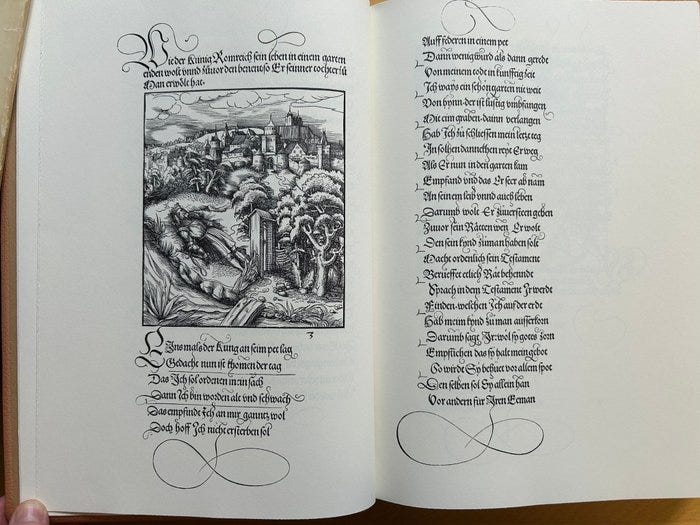 Wie der Künig Romreich sein leben in einem garten
enden wolt vnnd züuor den benent so Er seinner tochter zü
Man erwölt hat.
3
Eins mals der Kung an seim pet lag
Gedacht nun ist khomen der tag
Das Ich sol ordenen mein sach
Dann Ich bin worden alt vnd schwach
Das empfindt Ich an mir ganntz wol
Doch hoff Ich nicht ersterben sol
Auff federen in einem pet
Dann wenig wurd als dann geredt
Von meinem tode in kunfftig zeit
Ich ways ein schön garten nit weit
Von hynn der ist lustig vmbfangen
Mit eim graben darinn verlangen
Hab Ich zu schliessen mein letze teg
In solhen dannethen reyt Er weg
Als Er nun in den garten kam
Empfand vnd das Er seer ab nam
An seinem leib vnnd auch leben
Darumb wolt Er züuersteen geben
Züuor sein Rätten wen Er wolt
Den sein kynd zu man haben solt
Macht ordenlich sein Testament
Berüeffet etlich Rät behenndt
Sprach in dem Testament Ir werdt
Finden welchen Ich auf der erdt
Hab meim kynd zu man ausserkorn
Darumb sagt Ir wöl sy gotes zorn
Empflichen das sy halt mein gebot
So wirdt Sy behüet vor allem spot
Den selben sol Sy allein han
Vor andern für Iren Eeman